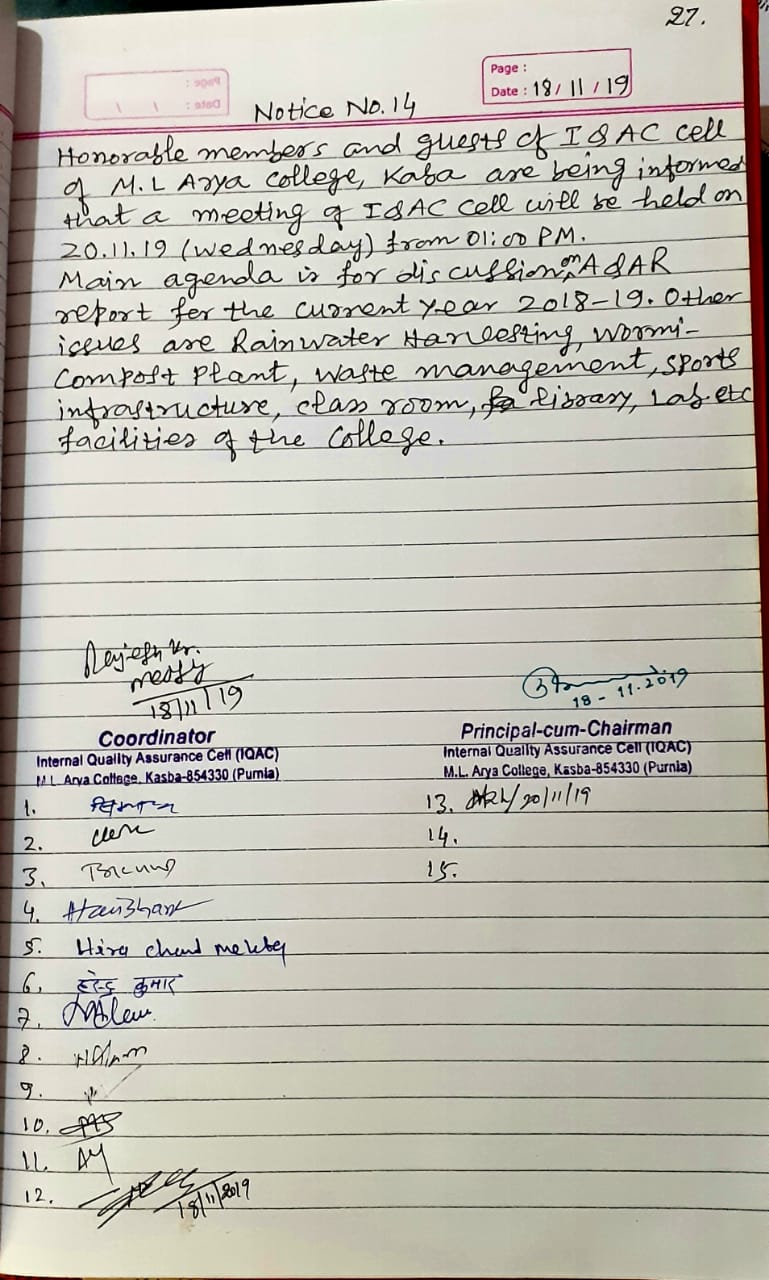 27.
Page :
Date : 18/11/19
Notice No.14
Honorable members and guests of IQAC cell
of M.L Arya College, Kasba are being informed
that a meeting of IQAC cell will be held on
20.11.19 (Wednesday) from 01:00 PM.
Main agenda is for discussion on AQAR
report for the current year 2018-19. Other
issues are Rainwater Harvesting, Wormi-
Compost Plant, waste management, sports
infrastructure, class room, library, Lab. etc
facilities of the College.
Rajesh Kr.
18/11/19
18-11.2019
Coordinator
Internal Quality Assurance Cell (IQAC)
M.L. Arya College, Kasba-854330 (Purnia)
Principal-cum-Chairman
Internal Quality Assurance Cell (IQAC)
M.L. Arya College, Kasba-854330 (Purnia)
1.
2.
3.
4.
5. Hira chand
6. हरेन्द्र कुमार
7.
8.
9.
10.
11.
12. 18/11/2019
13. 20/11/19
14.
15.